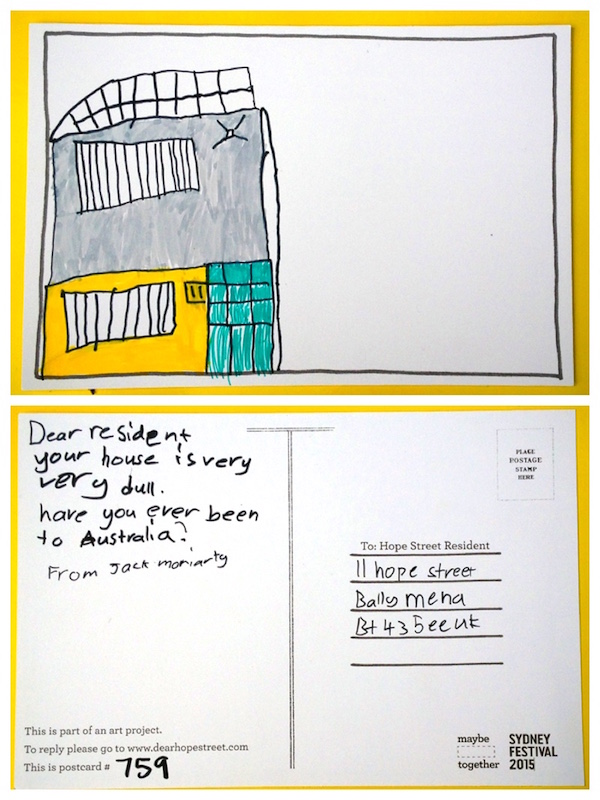 Dear resident
your house is very
very dull.
have you ever been
to Australia?
From Jack moriarty
PLACE
POSTAGE
STAMP
HERE
To: Hope Street Resident
11 hope street
Bally mena
Bt 43 5ee uk
This is part of an art project.
To reply please go to www.dearhopestreet.com
This is postcard # 759
maybe
together
SYDNEY
FESTIVAL
2015